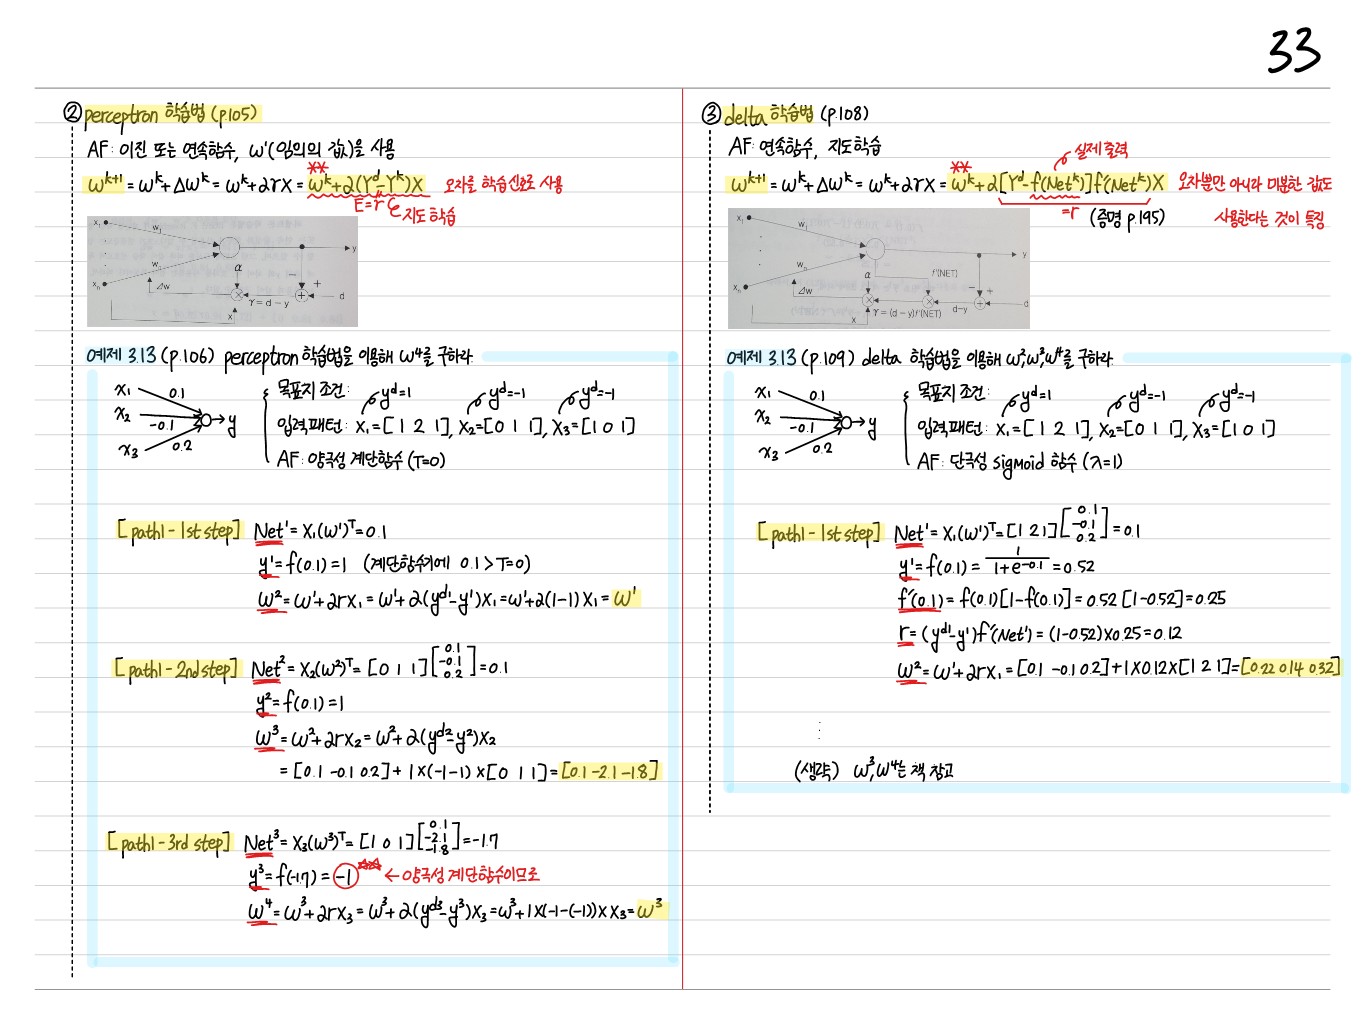 33
② perceptron 학습법 (p.105)
AF: 이진 또는 연속함수, w¹(임의의 값)을 사용
w^{k+1} = w^k + Δw^k = w^k + αrX = w^k + α(Y^d - Y^k)X 오차를 학습신호로 사용
**
E=r 지도학습
x₁ w₁ y
α
Δw
xₙ wₙ
γ = d − y − + d
x
예제 3.13 (p.106) perceptron 학습법을 이용해 w⁴를 구하라
x₁ 0.1
x₂ -0.1 y
x₃ 0.2
목표치 조건: y^d=1 y^d=-1 y^d=-1
입력패턴: X₁=[1 2 1], X₂=[0 1 1], X₃=[1 0 1]
AF: 양극성 계단함수 (T=0)
[path1-1st step] Net¹ = X₁(w¹)^T = 0.1
y¹ = f(0.1) = 1 (계단함수기에 0.1 > T=0)
w² = w¹+αrX₁ = w¹+α(y^{d1}-y¹)X₁ = w¹+α(1-1)X₁ = w¹
[path1-2nd step] Net² = X₂(w²)^T = [0 1 1] [0.1 -0.1 0.2] = 0.1
y² = f(0.1) = 1
w³ = w²+αrX₂ = w²+α(y^{d2}-y²)X₂
= [0.1 -0.1 0.2] + 1×(-1-1)×[0 1 1] = [0.1 -2.1 -1.8]
[path1-3rd step] Net³ = X₃(w³)^T = [1 0 1] [0.1 -2.1 -1.8] = -1.7
y³ = f(-1.7) = -1 ☆☆ ← 양극성 계단함수이므로
w⁴ = w³+αrX₃ = w³+α(y^{d3}-y³)X₃ = w³+1×(-1-(-1))×X₃ = w³
③ delta 학습법 (p.108)
AF: 연속함수, 지도학습
실제 출력
**
w^{k+1} = w^k + Δw^k = w^k + αrX = w^k + α[Y^d - f(Net^k)]f'(Net^k)X 오차뿐만 아니라 미분한 값도
=r (증명 p.195) 사용한다는 것이 특징
x₁ w₁ y
α f'(NET)
Δw
xₙ wₙ
γ = (d − y)f'(NET) d−y − + d
x
예제 3.13 (p.109) delta 학습법을 이용해 w²,w³,w⁴를 구하라
x₁ 0.1
x₂ -0.1 y
x₃ 0.2
목표치 조건: y^d=1 y^d=-1 y^d=-1
입력패턴: X₁=[1 2 1], X₂=[0 1 1], X₃=[1 0 1]
AF: 단극성 sigmoid 함수 (λ=1)
[path1-1st step] Net¹ = X₁(w¹)^T = [1 2 1] [0.1 -0.1 0.2] = 0.1
y¹ = f(0.1) = 1/(1+e^{-0.1}) = 0.52
f'(0.1) = f(0.1)[1-f(0.1)] = 0.52 [1-0.52] = 0.25
r = (y^{d1}-y¹)f'(Net¹) = (1-0.52)×0.25 = 0.12
w² = w¹+αrX₁ = [0.1 -0.1 0.2] + 1×0.12×[1 2 1] = [0.22 0.14 0.32]
⋮
(생략) w³,w⁴는 책 참고